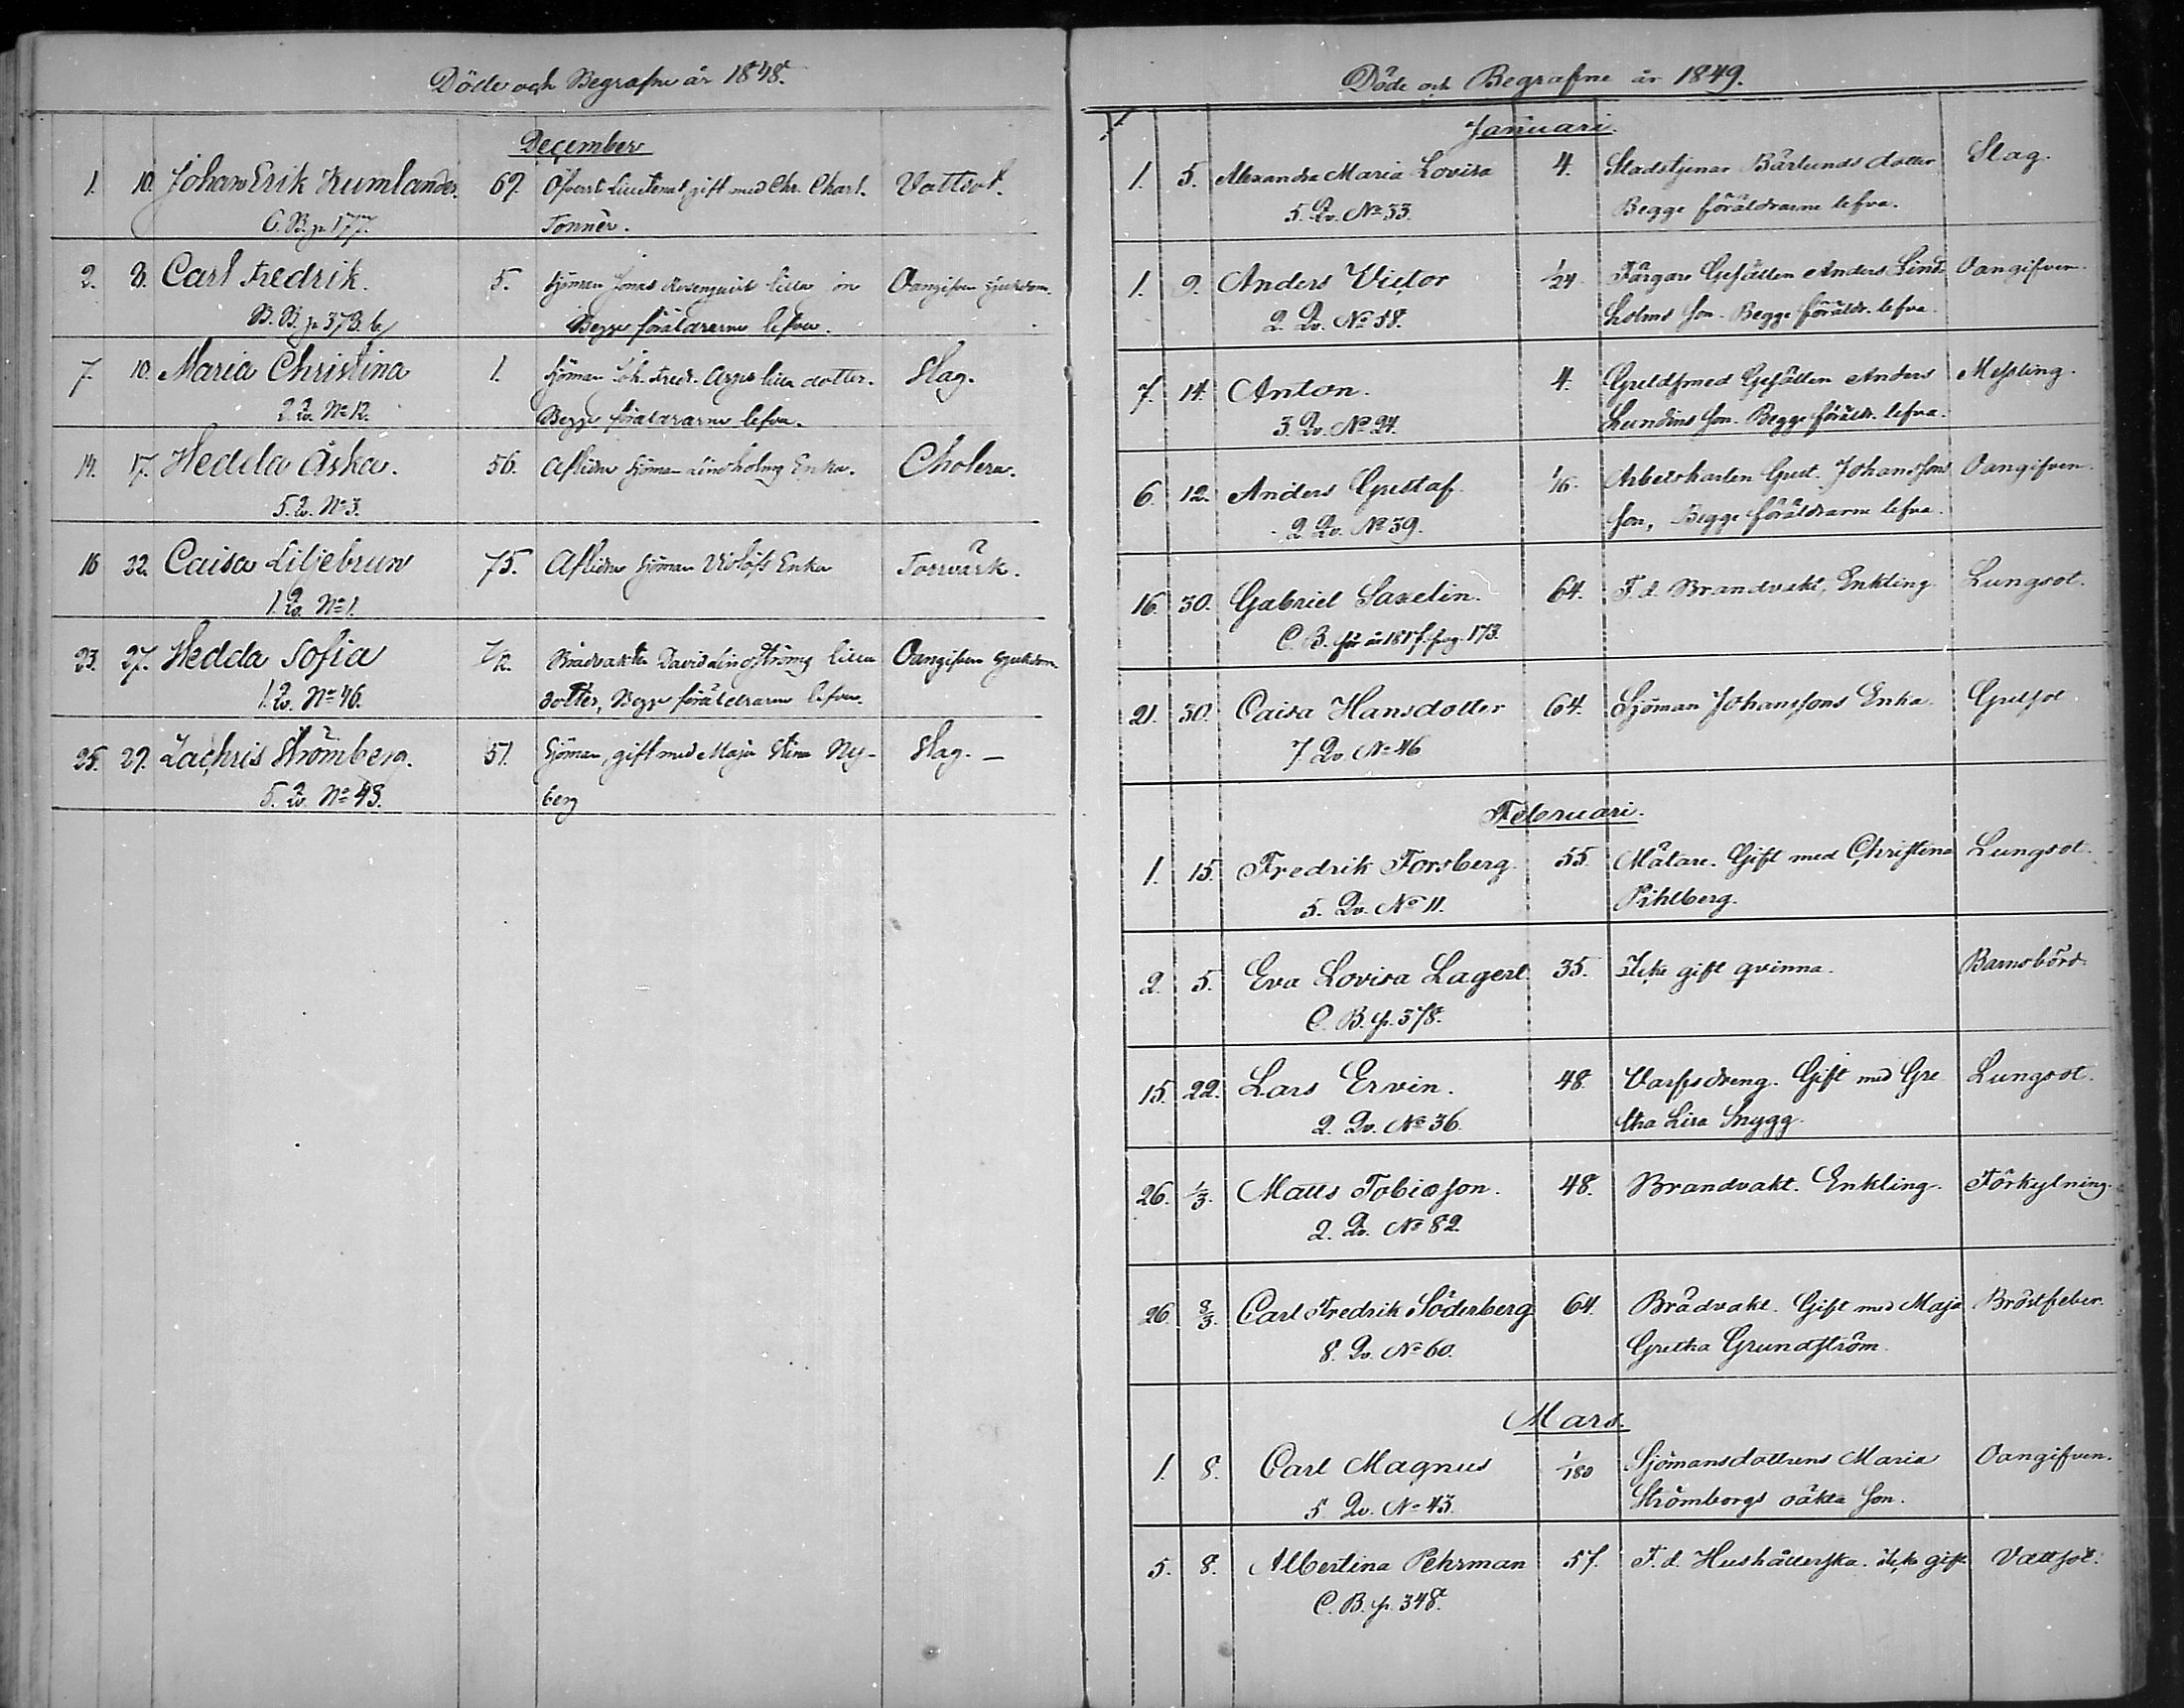 Döde och Begrafne år 1848.
December
1. 10. Johan Erik Kumlander. 69. Öfverst Lieutenat gift med Chr. Charl. Vattsot.
C. B. p. 177. Tonnér.
2. 8. Carl Fredrik. 5. Sjöman Jonas Rosenquists lilla son Oangifven sjukdom.
B. B. p. 373. b. Begge föräldrarne lefva.
7. 10. Maria Christina 1. Sjöman Joh. Fredr. lilla dotter. Slag.
2 Qv. No 12. Begge föräldrarne lefva.
14. 17. Hedda Åska. 56. Aflidne Sjöman Lindholms Enka. Cholera.
5. Qv. No 3.
16 22. Caisa Liljebrun 75. Aflidne Sjöman Enka Torrvärk.
1. Qv. No 1.
23. 27. Hedda Sofia David Lindströms lilla Oangifven sjukdom
1. Qv. No 46. dotter, Begge föräldrarne lefva.
25. 29. Zachris Strömberg. 51. Sjöman, gift med Maja Stina Ny- Slag. –
5. Qv. No 43. berg
Döde och Begrafne år 1849.
Januari.
1. 5. Alexandra Maria Lovisa 4. Stadstjenar Bärlunds dotter Slag.
5. Qv. No 33. Begge föräldrarne lefva.
1. 9. Anders Victor 1/24 Färgare Gesällen Anders Lind- Oangifven.
2. Qv. No 58. holms son. Begge föräldr. lefva.
7. 14. Anton. 4. Guldsmed Gesällen Anders Messling.
3. Qv. No 24. Lundins son. Begge föräldr. lefva.
6. 12. Anders Gustaf 1/16. Arbetskarlen Gust. Johanssons Oangifven.
2 Qv. No 39. son, Begge föräldrarne lefva.
16. 30. Gabriel Saxelin. 64. F. d. Brandvakt, Enkling Lungsot.
C. B. för år 181 pag. 173.
21. 30. Caisa Hansdotter 64. Sjöman Johanssons Enka. Gulsot
7 Qv. No 46
Februari.
1. 15. Fredrik Forsberg. 55. Mätare. Gift med Christina Lungsot.
5. Qv. No 11. Pihlberg.
2. 5. Eva Lovisa Lagert 35. Icke gift qvinna. Barnsbörd
C. B. p. 378.
15. 22. Lars Ervin. 48 Varfsdreng. Gift med Gre Lungsot.
2. Qv. No 36. tha Lisa Snygg.
26. 1/3. Matts Tobiasson. 48. Brandvakt. Enkling. Förkylning.
2. Qv. No 82.
26. 8/3. Carl Fredrik Söderberg 64. Brådvakt. Gift med Maja Bröstfeber.
8. Qv. No 60. Gretha Grundström.
Mars.
1. 8. Carl Magnus 1/180 Sjömansdottrens Maria Oangifven.
5 Qv. No 43. Strömbergs oäkta son.
5. 8. Albertina Pehrman 57. F. d. Hushållerska. icke gift Vattsot.
C. B. p. 348.